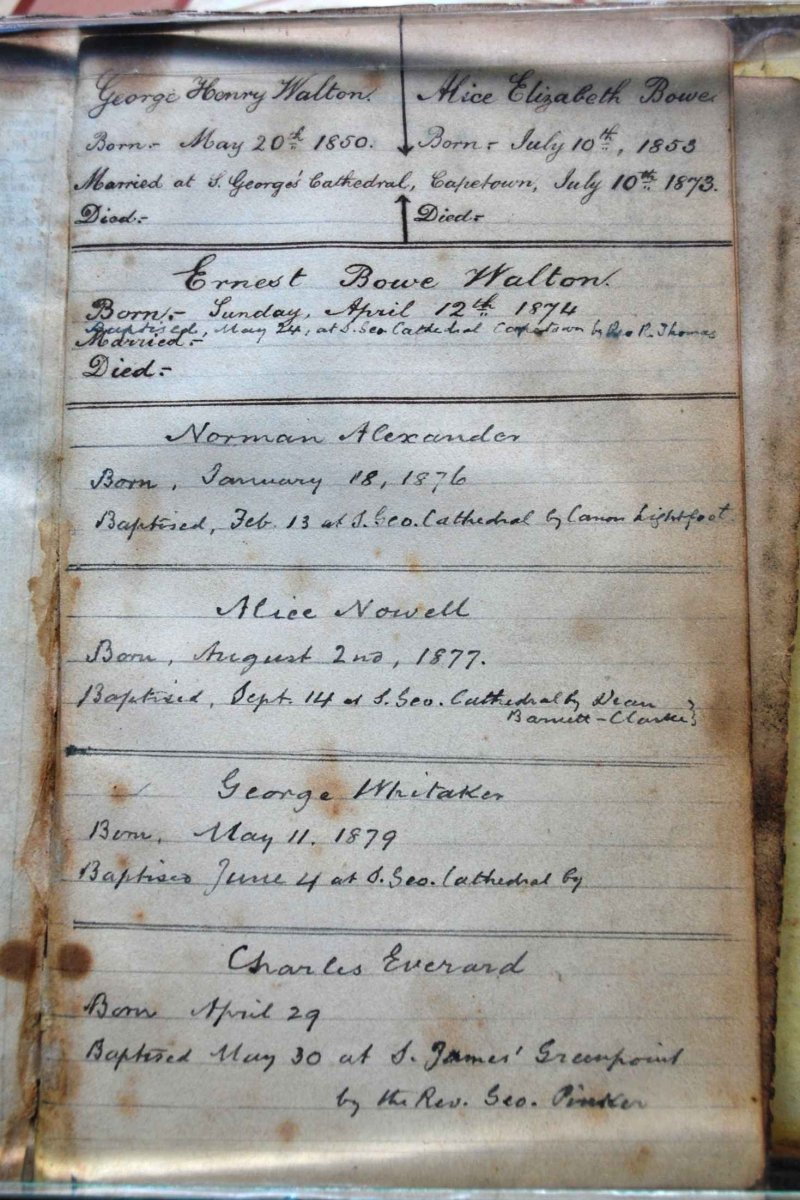 George Henry Walton. Alice Elizabeth Bowe.
Born:- May 20th 1850. Born:- July 10th, 1853
Married at S. George's Cathedral, Capetown, July 10th 1873.
Died:- Died:-
Ernest Bowe Walton.
Born:- Sunday, April 12th 1874
Baptised, May 24, at S. Geo. Cathedral Capetown by R. Thomas
Married:-
Died:-
Norman Alexander
Born, January 18, 1876
Baptised, Feb. 13 at S. Geo. Cathedral by Canon Lightfoot.
Alice Nowell
Born, August 2nd, 1877.
Baptised, Sept. 14 at S. Geo. Cathedral by Dean
Barnett-Clarke
George Whitaker
Born, May 11. 1879
Baptised June 4 at S. Geo. Cathedral by
Charles Everard
Born April 29
Baptised May 30 at S. James' Greenpoint
by the Rev. Geo. Pinker